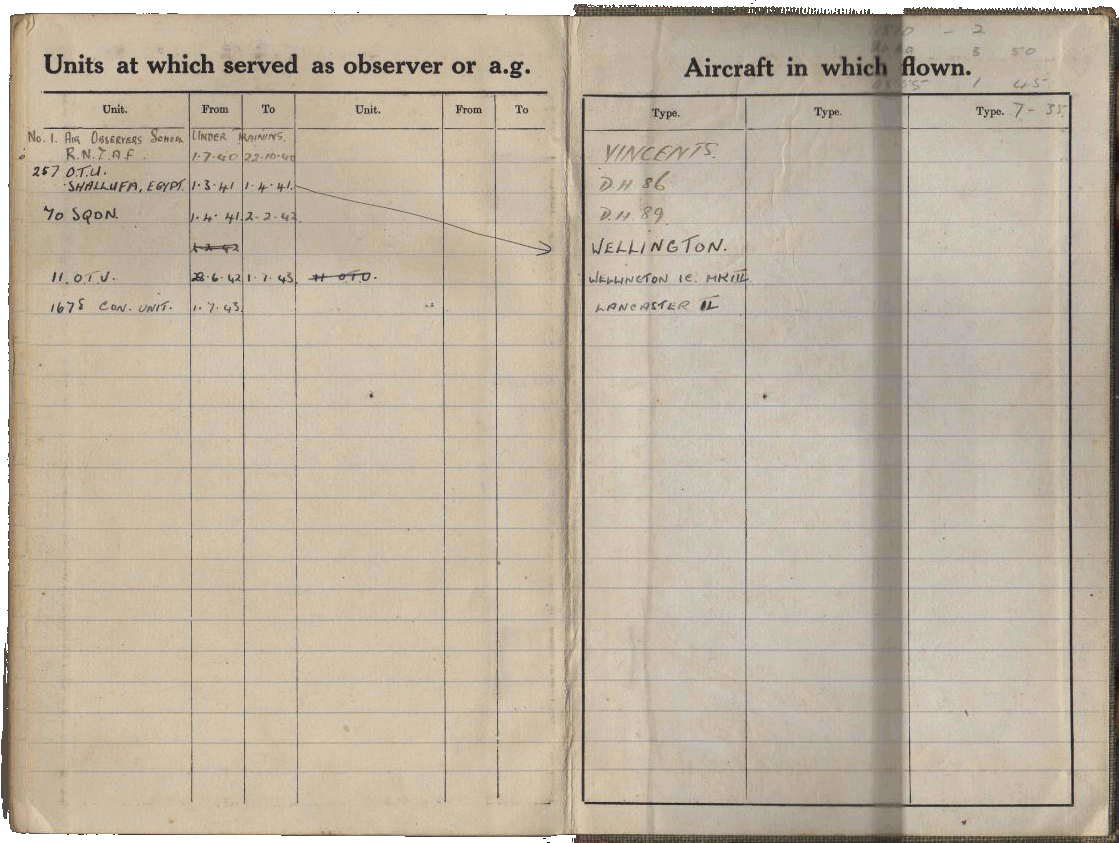 Units at which served as observer or a.g.
Unit. From To Unit. From To
No. 1. AIR OBSERVERS SCHOOL UNDER TRAINING.
R.N.Z.A.F. 1·7·40 22·10·40
257 O.T.U.
SHALLUFA, EGYPT. 1·3·41 1·4·41.
70 SQDN. 1·4·41. 2·2·42.
11. O.T.U. 6·42 1·7·43. 11 OTU.
1678 CON. UNIT. 1·7·43.
1510 - 2
3 50
1 45
Aircraft in which flown.
Type. Type. Type. 7-35
VINCENTS.
D.H. 86
D.H. 89
WELLINGTON.
WELLINGTON 1C. MKIII
LANCASTER II